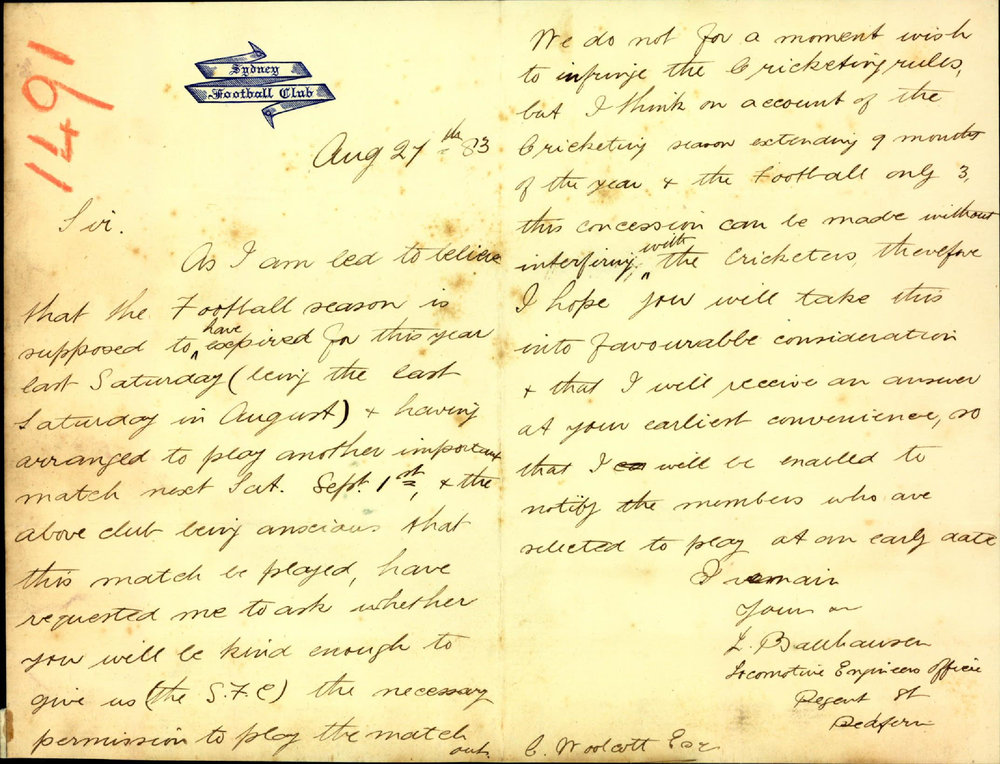 1491
Sydney
Football Club
Aug 27th 83
Sir.
As I am led to believe
that the Football season is
supposed to have expired for this year
last Saturday (being the last
Saturday in August) & having
arranged to play another important
match next Sat. Sept. 1st, & the
above club being anscious that
this match be played, have
requested me to ask whether
you will be kind enough to
give us (the S.F.C) the necessary
permission to play the match
out.
We do not for a moment wish
to infringe the Cricketing rules,
but I think on account of the
Cricketing season extending 9 months
of the year & the Football only 3,
this concession can be made without
interfiring with the Cricketers, therefore
I hope you will take this
into favourable consideration
& that I will receive an answer
at your earliest convenience, so
that I will be enabled to
notify the members who are
selected to play at an early date
I remain
Yours
L. Ballhausen
Locomotive Engineers Office
Regent St
Redfern
C. Woolcott Esq